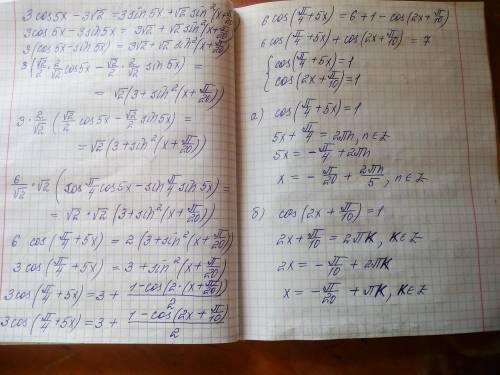 3 cos5x - 3√2 = 3 sin 5x + √2 sin²(x + π/20)
3cos5x - 3sin5x = 3√2 + √2 sin²(x + π/20)
3(cos5x - sin5x) = 3√2 + √2 sin²(x + π/20)
3(√2/2 · 2/√2 cos5x - √2/2 · 2/√2 sin5x) =
= √2 (3 + sin²(x + π/20))
3 · 2/√2 (√2/2 cos5x - √2/2 sin5x) =
= √2 (3 + sin²(x + π/20))
6/√2 · √2 (cos π/4 cos5x - sin π/4 sin 5x) =
= √2 · √2 (3 + sin²(x + π/20))
6 cos(π/4 + 5x) = 2 (3 + sin²(x + π/20))
3 cos(π/4 + 5x) = 3 + sin²(x + π/20)
3 cos(π/4 + 5x) = 3 + (1 - cos(2·(x + π/20)))/2
3 cos(π/4 + 5x) = 3 + (1 - cos(2x + π/10))/2
6 cos(π/4 + 5x) = 6 + 1 - cos(2x + π/10)
6 cos(π/4 + 5x) + cos(2x + π/10) = 7
{ cos(π/4 + 5x) = 1
cos(2x + π/10) = 1
а) cos(π/4 + 5x) = 1
5x + π/4 = 2πn, n∈Z
5x = -π/4 + 2πn
x = -π/20 + 2πn/5, n∈Z
б) cos(2x + π/10) = 1
2x + π/10 = 2πK, K∈Z
2x = -π/10 + 2πK
x = -π/20 + πK, K∈Z